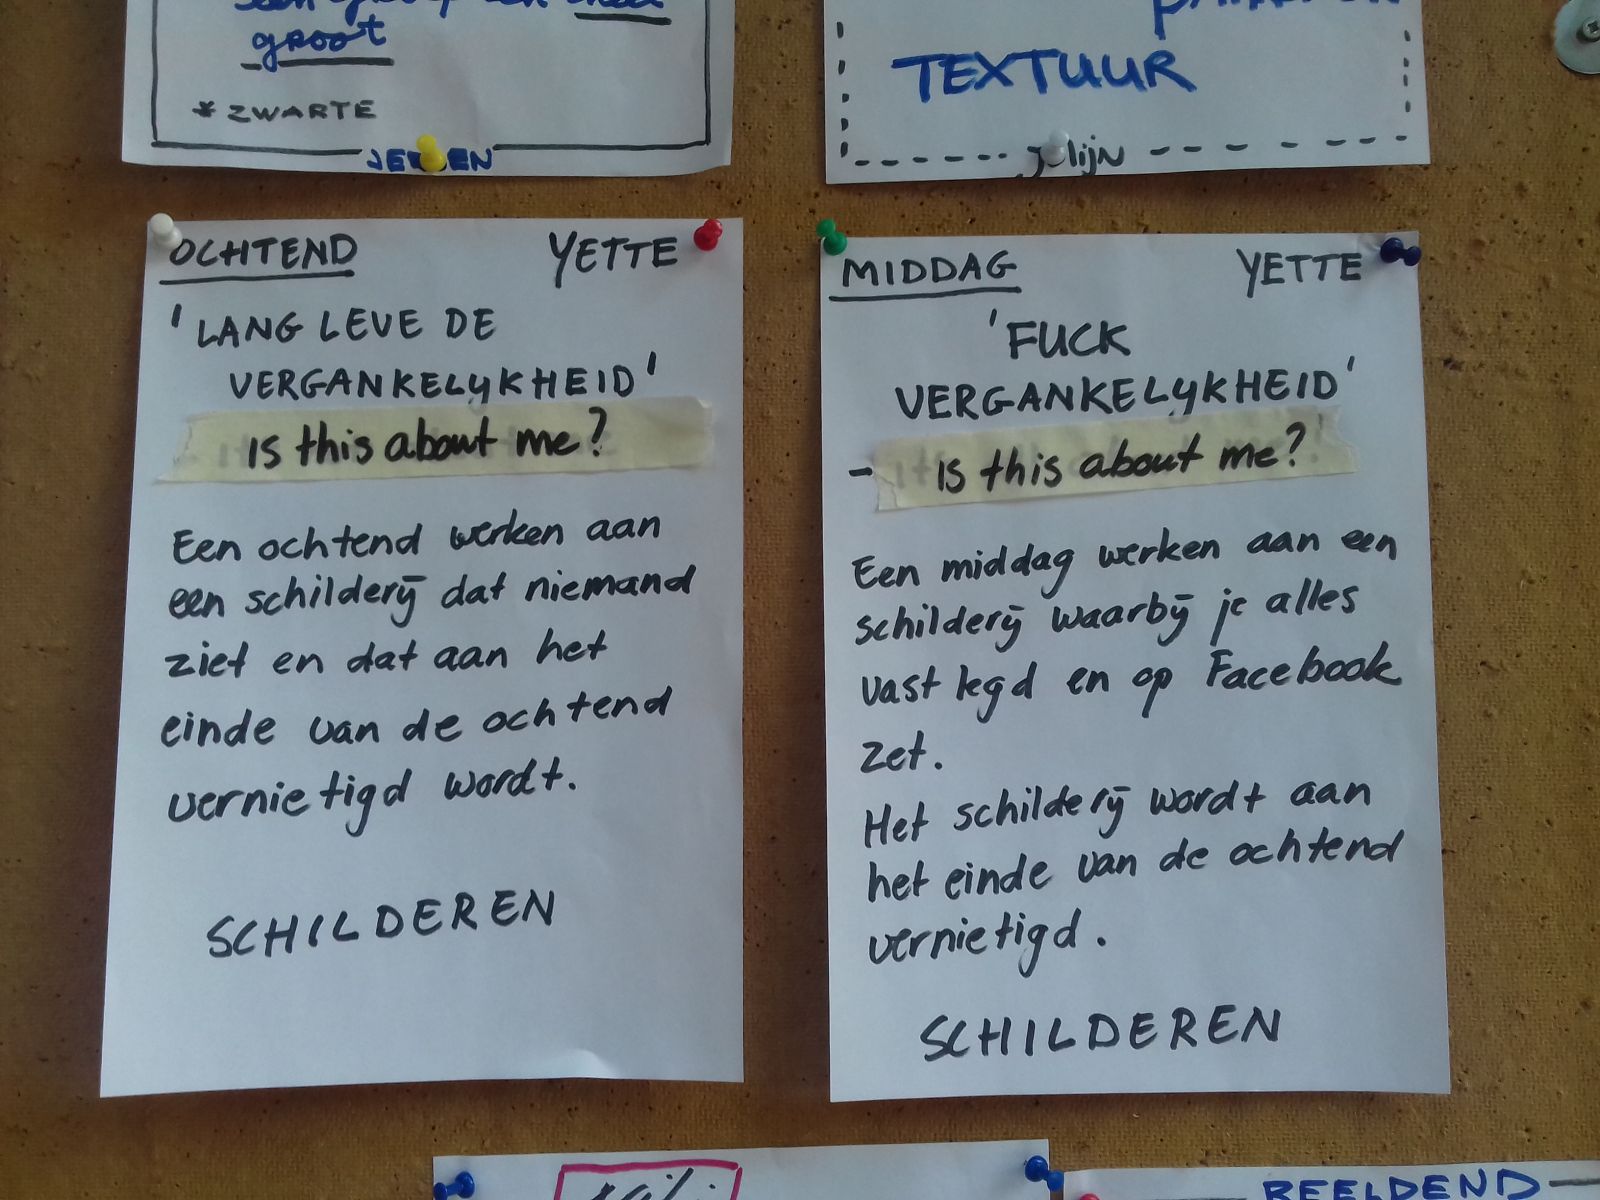 groot
* ZWARTE
TEXTUUR
OCHTEND YETTE
'LANG LEVE DE
VERGANKELYKHEID'
is this about me?
Een ochtend werken aan
een schilderij dat niemand
ziet en dat aan het
einde van de ochtend
vernietigd wordt.
SCHILDEREN
MIDDAG YETTE
'FUCK
VERGANKELYKHEID'
- is this about me?
Een middag werken aan een
schilderij waarbij je alles
vast legd en op Facebook
zet.
Het schilderij wordt aan
het einde van de ochtend
vernietigd.
SCHILDEREN
BEELDEND